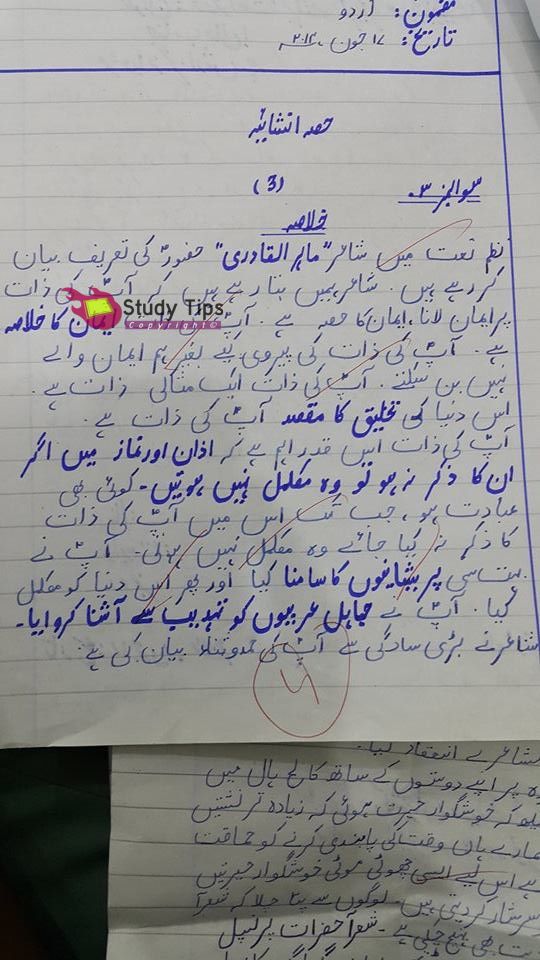 مضمون: اردو
تاریخ: ۱۷ جون،
حصہ انشائیہ
سوال نمبر ۳۔
(3)
خلاصہ
نظم نعت میں شاعر "ماہر القادری" حضورؐ کی تعریف بیان
کر رہے ہیں۔ شاعر ہمیں بتا رہے ہیں کہ آپؐ کی ذات
پر ایمان لانا، ایمان کا حصہ ہے۔ آپؐ ایمان کا خلاصہ
Study Tips
Copyright©
ہے۔ آپؐ کی ذات کی پیروی کیے بغیر ہم ایمان والے
نہیں بن سکتے۔ آپؐ کی ذات ایک مثالی ذات ہے۔
اس دنیا کی تخلیق کا مقصد آپؐ کی ذات ہے۔
آپؐ کی ذات اس قدر اہم ہے کہ اذان اور نماز میں اگر
ان کا ذکر نہ ہو تو وہ مکمل نہیں ہوتیں۔ کوئی بھی
عبادت ہو، جب تک اس میں آپؐ کی ذات
کا ذکر نہ کیا جائے وہ مکمل نہیں ہوتی۔ آپؐ نے
بہت سی پریشانیوں کا سامنا کیا اور پھر اس دنیا کو مکمل
کیا۔ آپؐ نے جاہل عربیوں کو تہذیب سے آشنا کروایا۔
شاعر نے بڑی سادگی سے آپؐ کی حمدوثناء بیان کی ہے۔
مشاعرے انعقاد کیا۔
پر اپنے دوستوں کے ساتھ کالج ہال میں
کہ خوشگوار حیرت ہوئی کہ زیادہ تر نشتیں
ہمارے ہاں وقت کی پابندی کرنے کو حماقت
ہے اس لیے ایسی چھوٹی موٹی خوشگوار حیرتیں
سرشار کر دیتی ہیں۔ لوگوں سے پتا چلا کہ شعرآ
بھی پہنچ چکے ہے۔ شعرآ حضرات پرنسپل